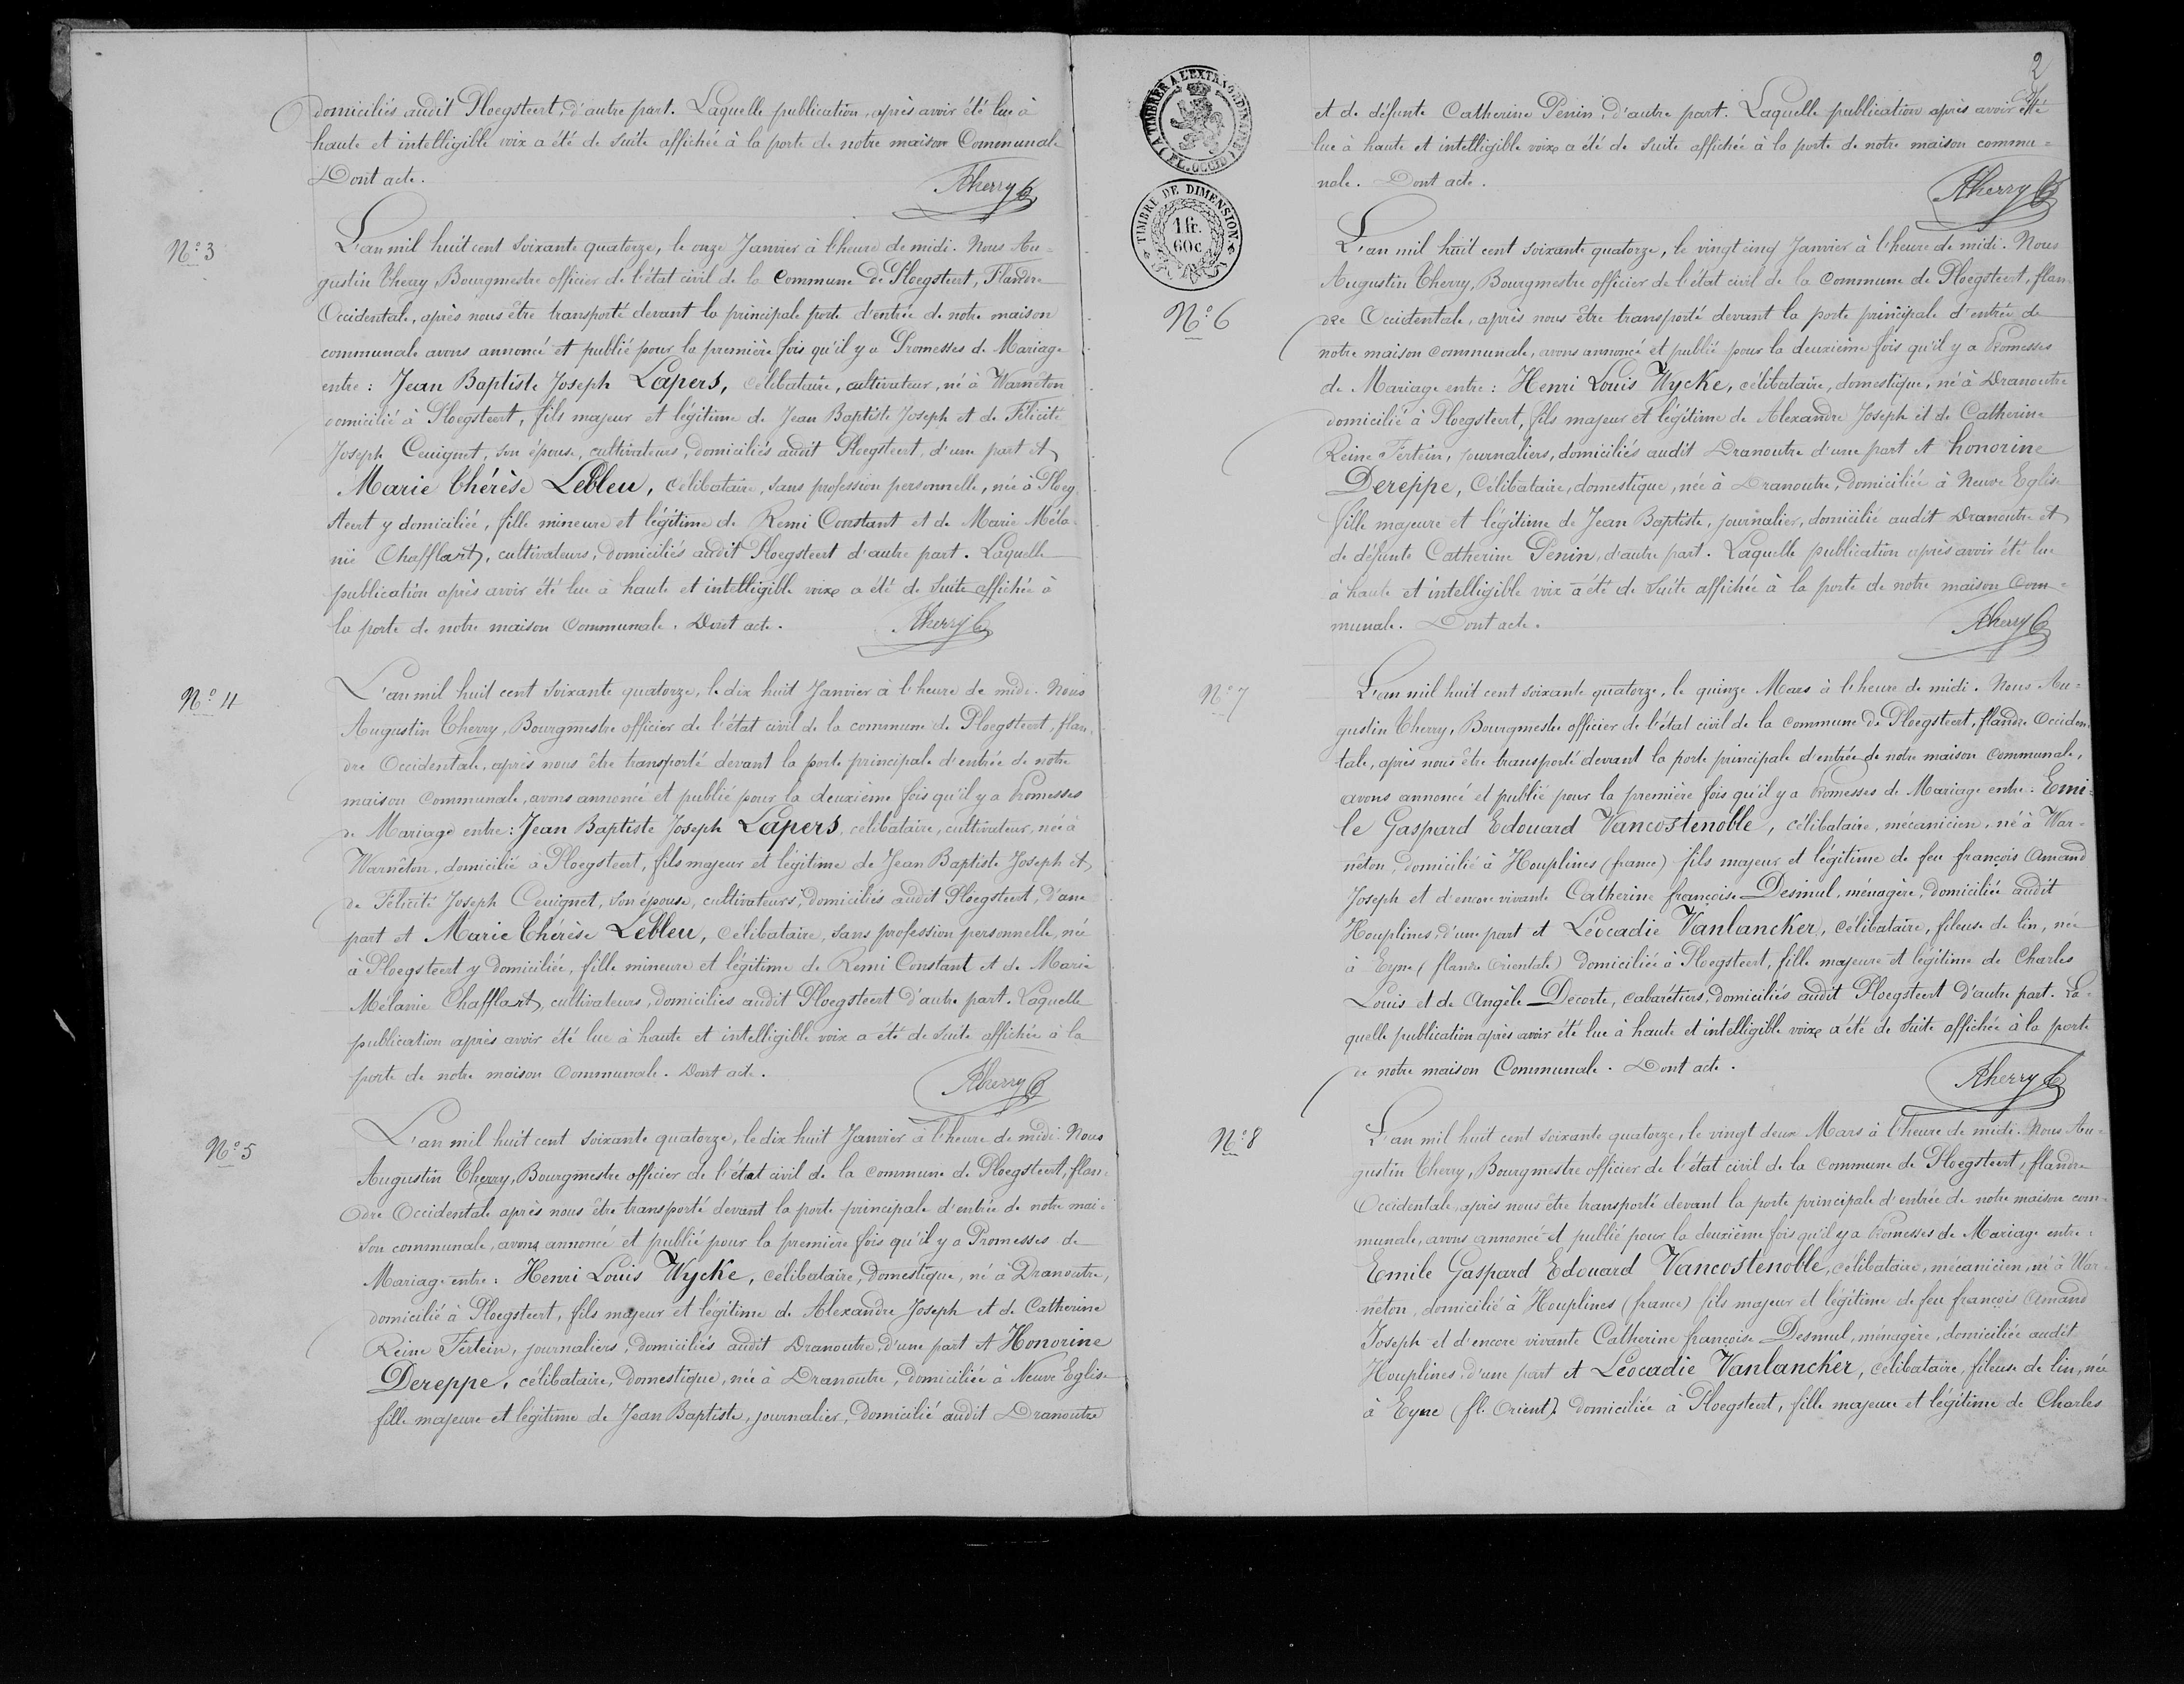 domiciliés audit Ploegsteert, d'autre part. Laquelle publication, après avoir été lue à
haute et intelligible voix a été de suite affichée à la porte de notre maison Communale
Dont acte.
ATherry
N.º 3
L'an mil huit cent soixante quatorze, le onze Janvier à l'heure de midi. Nous Au=
gustin Therry, Bourgmestre officier de l'état civil de la Commune de Ploegsteert, Flandre
Occidentale, après nous être transporté devant la principale porte d'entrée de notre maison
communale avons annoncé et publié pour la première fois qu'il y a Promesses de Mariage
entre : Jean Baptiste Joseph Lapers, célibataire, cultivateur, né à Warnêton
domicilié à Ploegsteert, fils majeur et légitime de Jean Baptiste Joseph et de Félicité
Joseph Ceuignet, son épouse, cultivateurs, domiciliés audit Ploegsteert, d'une part et
Marie Thérèse Lebleu, célibataire, sans profession personnelle, née à Ploeg
steert y domiciliée, fille mineure et légitime de Remi Constant et de Marie Méla-
nie Chafflart, cultivateurs, domiciliés audit Ploegsteert d'autre part. Laquelle
publication après avoir été lue à haute et intelligible voixe a été de suite affichée à
la porte de notre maison Communale. Dont acte.
ATherry
N.º 4
L'an mil huit cent soixante quatorze, le dix huit Janvier à l'heure de midi. Nous
Augustin Therry, Bourgmestre officier de l'état civil de la commune de Ploegsteert, flan-
dre Occidentale, après nous être transporté devant la porte principale d'entrée de notre
maison Communale, avons annoncé et publié pour la deuxième fois qu'il y a Promesses
de Mariage entre : Jean Baptiste Joseph Lapers, célibataire, cultivateur, né à
Warnêton, domicilié à Ploegsteert, fils majeur et légitime de Jean Baptiste Joseph et
de Félicité Joseph Ceuignet, son épouse, cultivateurs, domiciliés audit Ploegsteert, d'une
part et Marie Thérèse Lebleu, célibataire, sans profession personnelle, née
à Ploegsteert y domiciliée, fille mineure et légitime de Remi Constant et de Marie
Mélanie Chafflart, cultivateurs, domiciliés audit Ploegsteert d'autre part. Laquelle
publication après avoir été lue à haute et intelligible voix a été de suite affichée à la
porte de notre maison Communale. Dont acte.
ATherry
N.º 5
L'an mil huit cent soixante quatorze, le dix huit Janvier à l'heure de midi. Nous
Augustin Therry, Bourgmestre officier de l'état civil de la commune de Ploegsteert, flan-
dre Occidentale après nous être transporté devant la porte principale d'entrée de notre mai-
son communale, avons annoncé et publié pour la première fois qu'il y a Promesses de
Mariage entre : Henri Louis Wycke, célibataire, domestique, né à Dranoutre,
domicilié à Ploegsteert, fils majeur et légitime de Alexandre Joseph et de Catherine
Reine Fertein, journaliers, domiciliés audit Dranoutre, d'une part et Honorine
Dereppe, célibataire, domestique, née à Dranoutre, domiciliée à Neuve Eglise
fille majeure et légitime de Jean Baptiste, journalier, domicilié audit Dranoutre
2
A TIMBRER A L'EXTRAORDINAIRE
(FL. OCCID.)
TIMBRE DE DIMENSION
1 fr.
60 c.
et de défunte Catherine Penin, d'autre part. Laquelle publication après avoir été
lue à haute et intelligible voixe a été de suite affichée à la porte de notre maison commu=
nale. Dont acte.
ATherry
N.º 6
L'an mil huit cent soixante quatorze, le vingt cinq Janvier à l'heure de midi. Nous
Augustin Therry, Bourgmestre officier de l'état civil de la Commune de Ploegsteert, flan-
dre Occidentale, après nous être transporté devant la porte principale d'entrée de
notre maison communale, avons annoncé et publié pour la deuxième fois qu'il y a Promesses
de Mariage entre : Henri Louis Wycke, célibataire, domestique, né à Dranoutre
domicilié à Ploegsteert, fils majeur et légitime de Alexandre Joseph et de Catherine
Reine Fertein, journaliers, domiciliés audit Dranoutre d'une part et honorine
Dereppe, Célibataire, domestique, née à Dranoutre, domiciliée à Neuve Eglise
fille majeure et légitime de Jean Baptiste, journalier, domicilié audit Dranoutre et
de défunte Catherine Penin, d'autre part. Laquelle publication après avoir été lue
à haute et intelligible voix a été de suite affichée à la porte de notre maison Com=
munale. Dont acte.
ATherry
N.º 7
L'an mil huit cent soixante quatorze, le quinze Mars à l'heure de midi. Nous Au=
gustin Therry, Bourgmestre officier de l'état civil de la commune de Ploegsteert, flandre Occiden-
tale, après nous être transporté devant la porte principale d'entrée de notre maison communale,
avons annoncé et publié pour la première fois qu'il y a Promesses de Mariage entre : Emi-
le Gaspard Edouard Vancostenoble, célibataire, mécanicien, né à War-
nêton, domicilié à Houplines (france) fils majeur et légitime de feu françois Amand
Joseph et d'encore vivante Catherine françoise Desmul, ménagère, domiciliée audit
Houplines, d'une part et Léocadie Vanlancker, célibataire, fileuse de lin, née
à Eyne (flandre Orientale) domiciliée à Ploegsteert, fille majeure et légitime de Charles
Louis et de Angèle Decorte, cabarétiers, domiciliés audit Ploegsteert d'autre part. La-
quelle publication après avoir été lue à haute et intelligible voixe a été de suite affichée à la porte
de notre maison Communale. Dont acte.
ATherry
N.º 8
L'an mil huit cent soixante quatorze, le vingt deux Mars à l'heure de midi. Nous Au-
gustin Therry, Bourgmestre officier de l'état civil de la Commune de Ploegsteert, flandre
Occidentale, après nous être transporté devant la porte principale d'entrée de notre maison com-
munale, avons annoncé et publié pour la deuxième fois qu'il y a Promesses de Mariage entre :
Emile Gaspard Edouard Vancostenoble, célibataire, mécanicien, né à War-
nêton, domicilié à Houplines (france) fils majeur et légitime de feu françois Amand
Joseph et d'encore vivante Catherine françoise Desmul, ménagère, domiciliée audit
Houplines, d'une part et Léocadie Vanlancker, célibataire, fileuse de lin, née
à Eyne (fl. Orient.) domiciliée à Ploegsteert, fille majeure et légitime de Charles